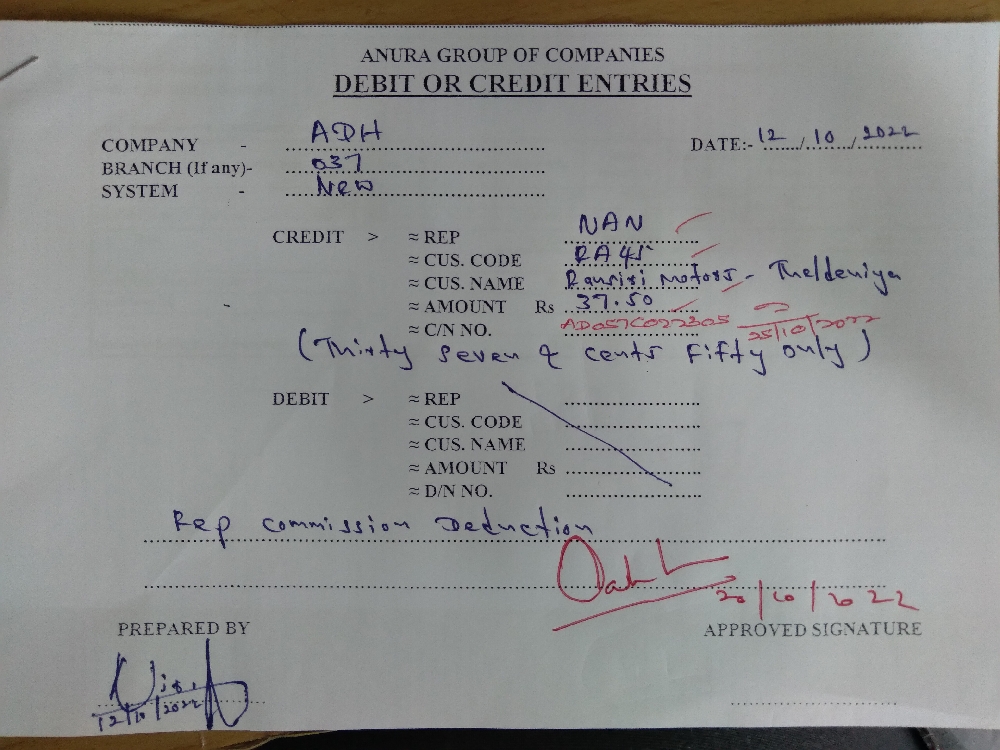 ANURA GROUP OF COMPANIES
DEBIT OR CREDIT ENTRIES
COMPANY - ADH
DATE:- 12 / 10 / 2022
BRANCH (If any)- 037
SYSTEM - New
CREDIT > ≈ REP NAN
≈ CUS. CODE RA45
≈ CUS. NAME Ransiri Motors - Theldeniya
≈ AMOUNT Rs 37.50
≈ C/N NO. AD057C022305 25/10/2022
(Thirty Seven & cents Fifty only)
DEBIT > ≈ REP
≈ CUS. CODE
≈ CUS. NAME
≈ AMOUNT Rs
≈ D/N NO.
Rep commission Deduction
20/10/2022
PREPARED BY
APPROVED SIGNATURE
12/10/2022